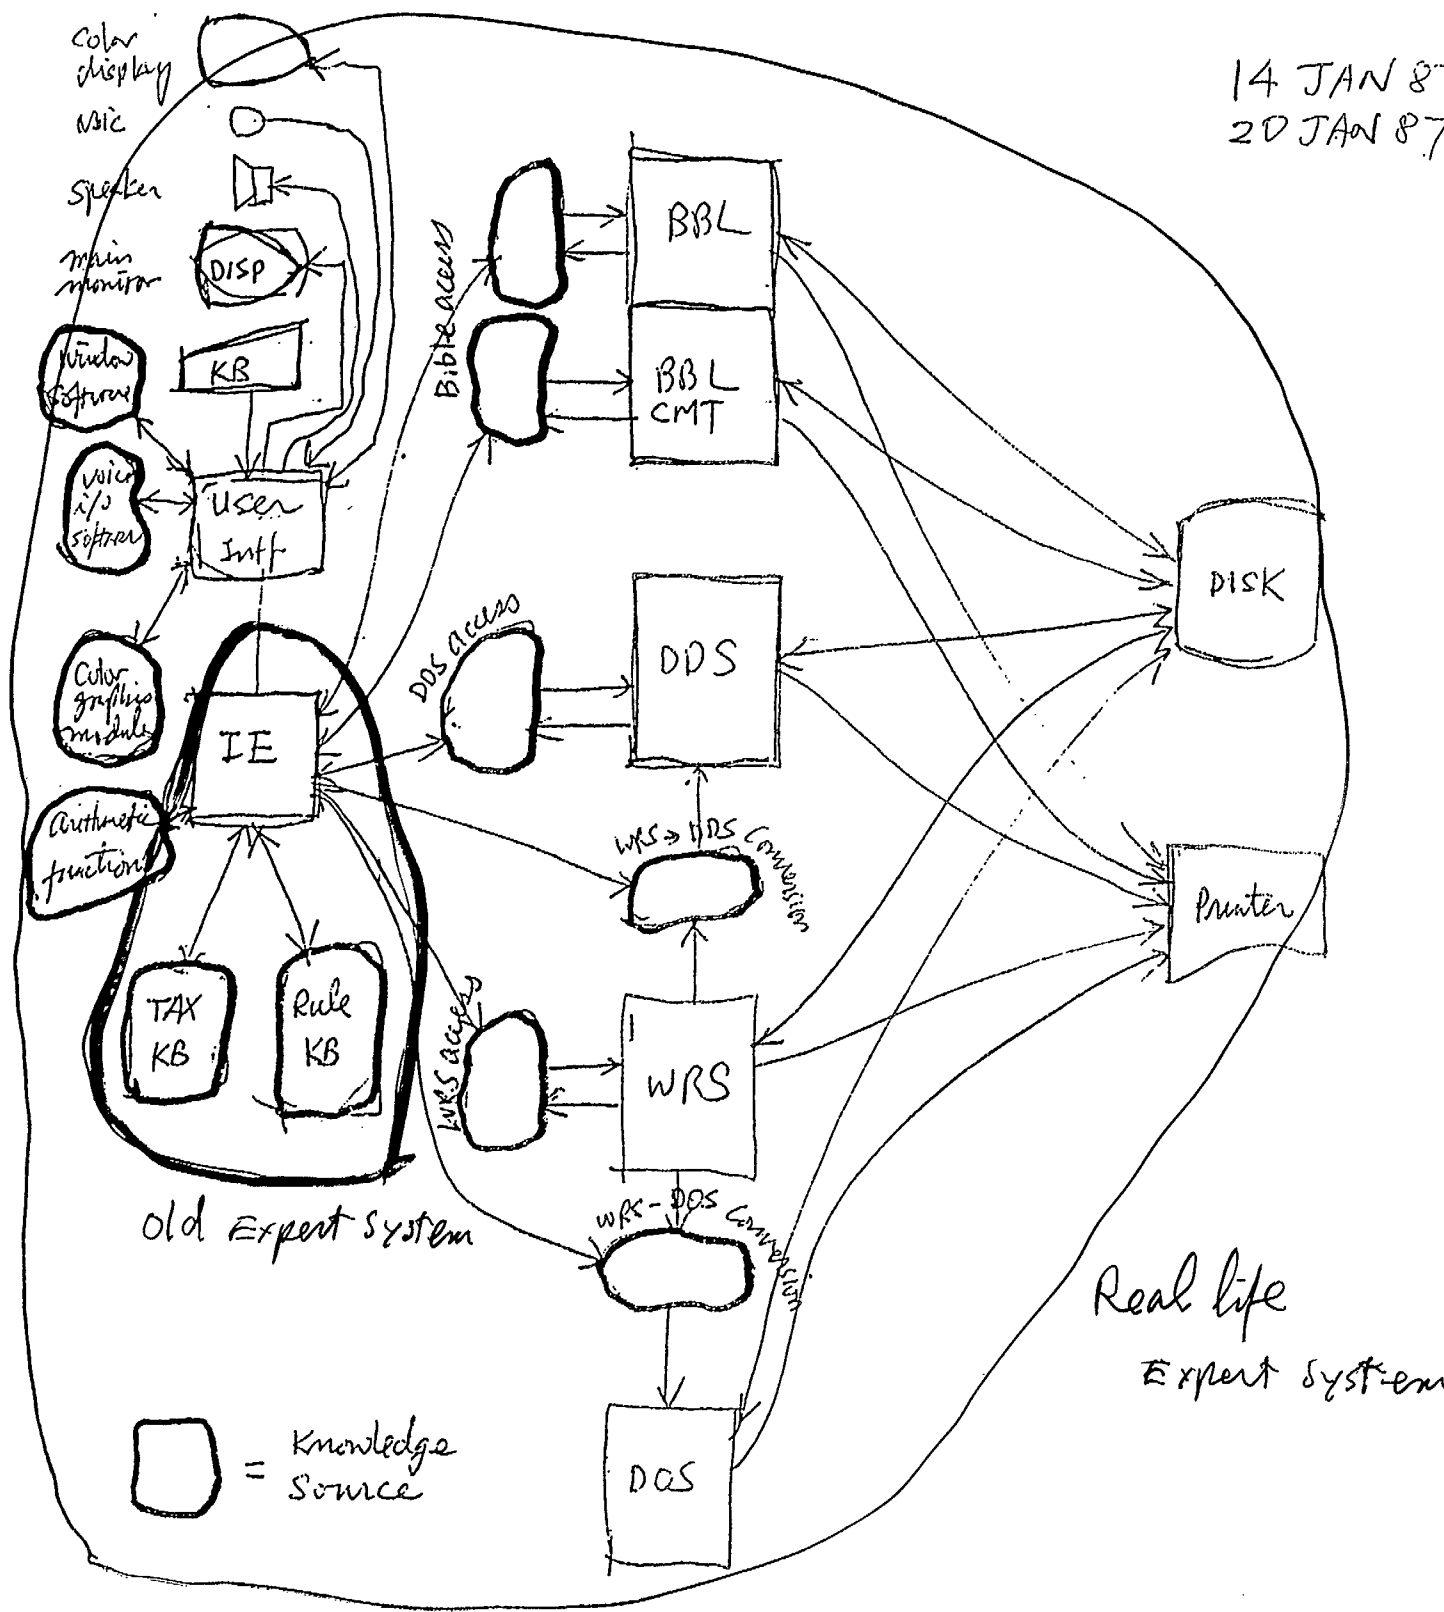 14 JAN 87
20 JAN 87
Color
display
Mic
speaker
main
monitor
DISP
KB
Window
software
Voice
i/o
software
User
Intf
Color
graphics
module
Arithmetic
function
IE
TAX
KB
Rule
KB
Old Expert System
Bible access
BBL
BBL
CMT
DDS access
DDS
WRS → DDS Conversion
WRS access
WRS
WRS-DOS Conversion
DOS
DISK
Printer
Real life
Expert System
= Knowledge
Source